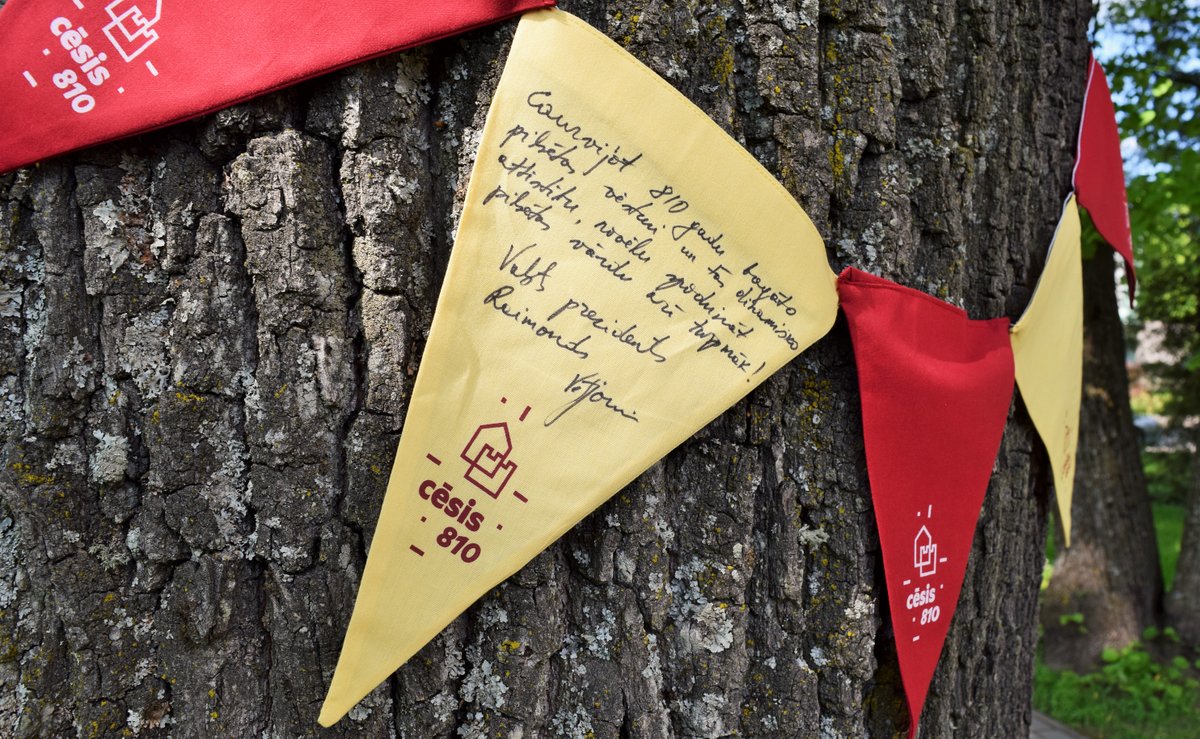 cēsis
810
Caurvijot 810 gadu bagāto
pilsētas vēsturi un tās dinamisko
attīstību, novēlu spodrināt
pilsētas vārdu arī turpmāk!
Valsts prezidents
Raimonds
cēsis
810
cēsis
810